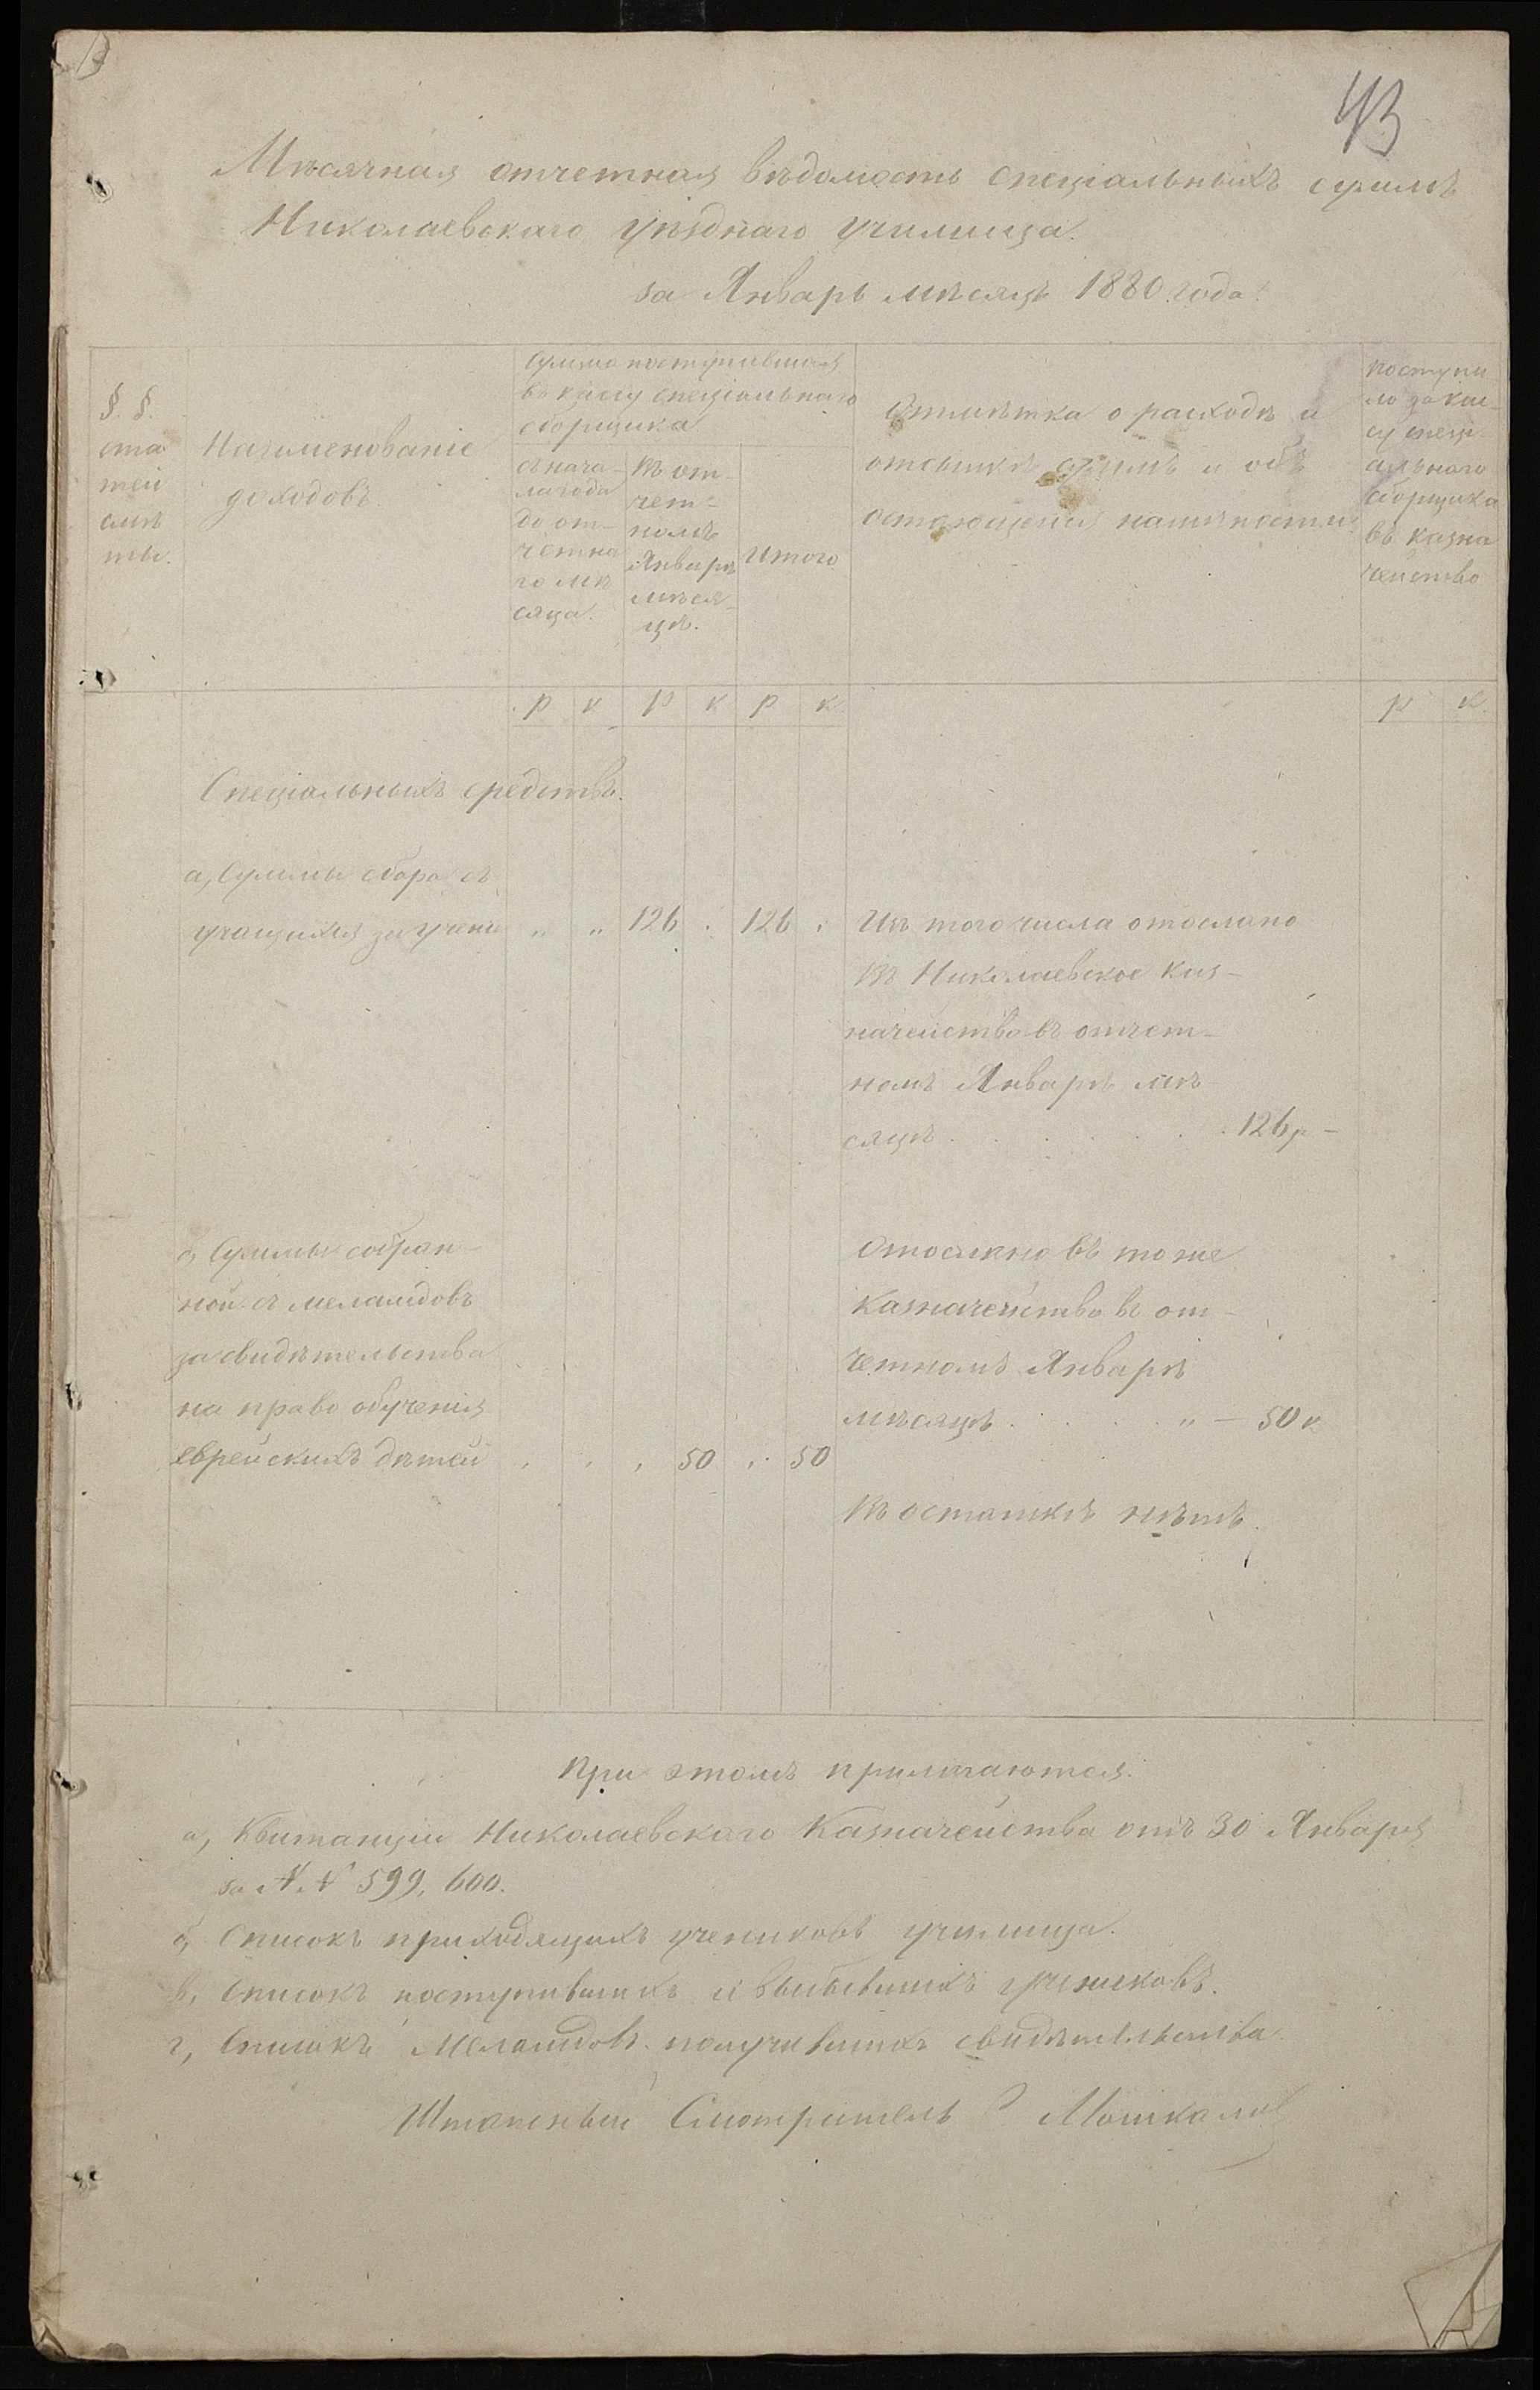 43
Мѣсячная отчетная вѣдомость спеціальныхъ суммъ
Николаевскаго уѣзднаго училища.
за Январь мѣсяцъ 1880 года.
§. §.
ста
тей
смѣ
ты.
Наименованіе
доходовъ
Сумма поступившая
въ кассу спеціальнаго
сборщика
съ нача-
ла года
до от-
четна
го мѣ
сяца.
Въ от-
чет-
номъ
Январѣ
мѣся-
цѣ.
Итого
Отмѣтка о расходѣ и
отсылкѣ суммъ и объ
остающейся наличности
поступи
ло за кас-
су спеці-
альнаго
сборщика
въ казна
чейство
р к р к р к р к
Спеціальныхъ средствъ.
а, Суммы сбора съ
учащихся за учені „ „ 126 . 126 .
Изъ того числа отослано
въ Николаевское каз-
начейство въ отчет-
номъ Январѣ мѣ-
сяцѣ . . . . . . 126 р —
б, Суммы собран-
ной съ меламдовъ
за свидѣтельства
на право обученія
еврейскихъ дѣтей . . . 50 . . 50
Отослано въ тоже
казначейство въ от-
четномъ Январѣ
мѣсяцѣ . . . . . „ — 50 к
Въ остаткѣ нѣтъ.
При этомъ прилагаются.
а, Квитанціи Николаевскаго Казначейства отъ 30 Января
за N. N 599, 600.
б, Списокъ приходящихъ учениковъ училища.
в, Списокъ поступившихъ и выбывшихъ учениковъ.
г, Списокъ Меламдовъ получившихъ свидѣтельства.
Штатный Смотритель